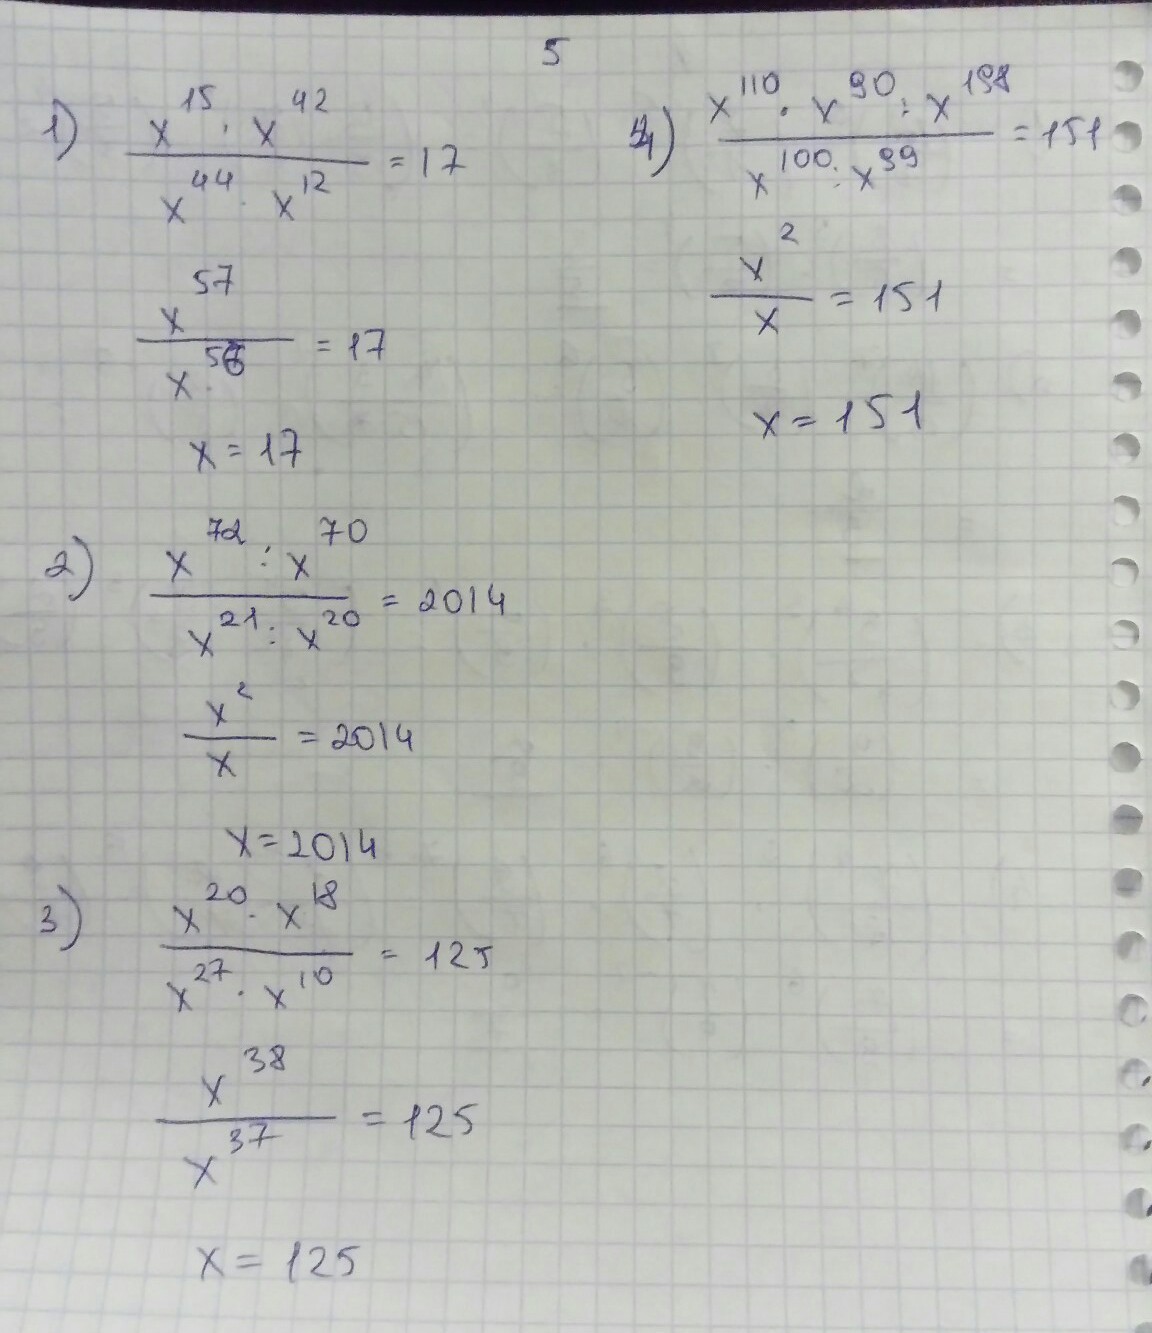 5
1) x^15 · x^42 / x^44 · x^12 = 17
x^57 / x^56 = 17
x = 17
2) x^72 : x^70 / x^21 : x^20 = 2014
x^2 / x = 2014
x = 2014
3) x^20 · x^18 / x^27 · x^10 = 125
x^38 / x^37 = 125
x = 125
4) x^110 · x^90 : x^198 / x^100 : x^99 = 151
x^2 / x = 151
x = 151